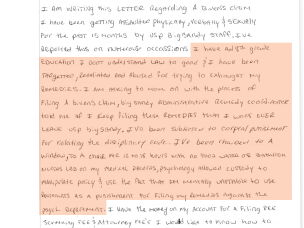 I AM WRITING THIS LETTER REGARDING A BIVENS CLAIM
I HAVE BEEN GETTING ASSAULTED PHYSICALLY, VERBALLY & SEXUALLY
FOR THE PAST 15 MONTHS BY USP BIG SANDY STAFF, I'VE
REPORTED THIS ON NUMEROUS OCCASSIONS. I HAVE A GRADE
EDUCATION I DON'T UNDERSTAND LAW TO GOOD & I HAVE BEEN
TARGETED, RETALIATED AND ABUSED FOR TRYING TO EXHAUST MY
REMEDIES. I AM ASKING TO MOVE ON WITH THE PROCESS OF
FILING A BIVENS CLAIM, BIG SANDY ADMINISTRATIVE REMEDY COORDINATOR
TOLD ME IF I KEEP FILING THESE REMEDIES THAT I WON'T EVER
LEAVE USP BIG SANDY. I'VE BEEN SUBJECTED TO CORPORAL PUNISHMENT
FOR VIOLATING THE DISCIPLINARY CODE. I'VE BEEN CHAINED TO A
WINDOW, TO A CHAIR HOURS WITH NO FOOD WATER OR BATHROOM
NURSES LIED ON MY MEDICAL RECORDS, PSYCHOLOGY ALLOWED CUSTODY TO
MANIPULATE POLICY & USE THE FACT THAT I'M MENTALLY UNSTABLE TO USE
AS A PUNISHMENT FOR FILING MY REMEDIES AGAINST THE
PSYCH DEPARTMENT. I HAVE THE MONEY ON MY ACCOUNT FOR A FILING FEE
FEE & ATTORNEY FEE'S I WOULD LIKE TO KNOW HOW TO